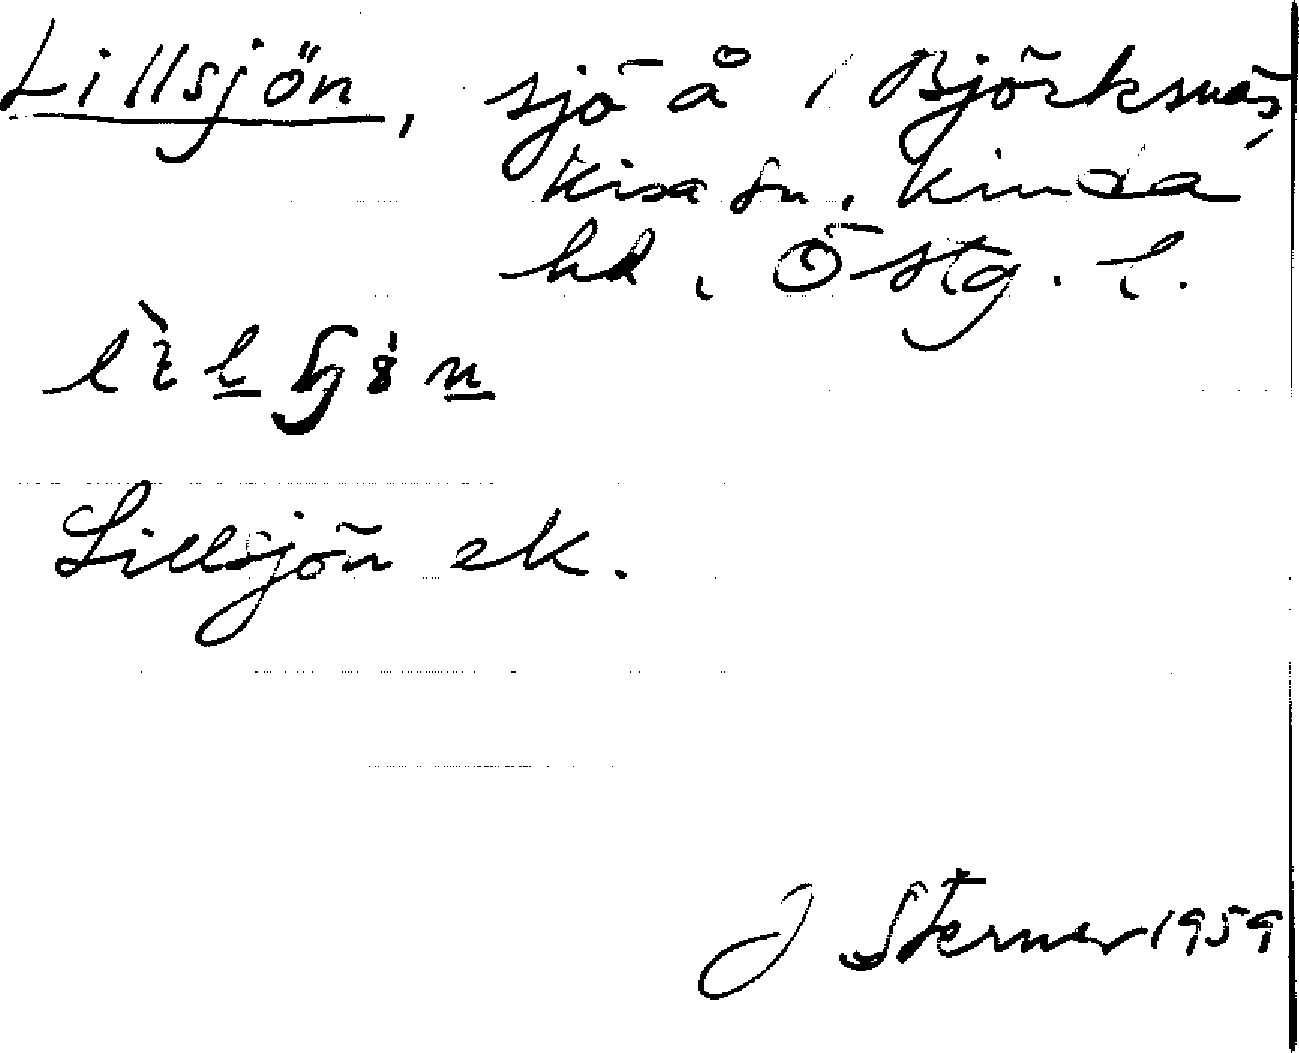 Lillsjön, sjö å 1 Björksnäs,
Kisa sn, Kinda
hd, Östg. l.
Lillsjön ek.
J Sterner 1959